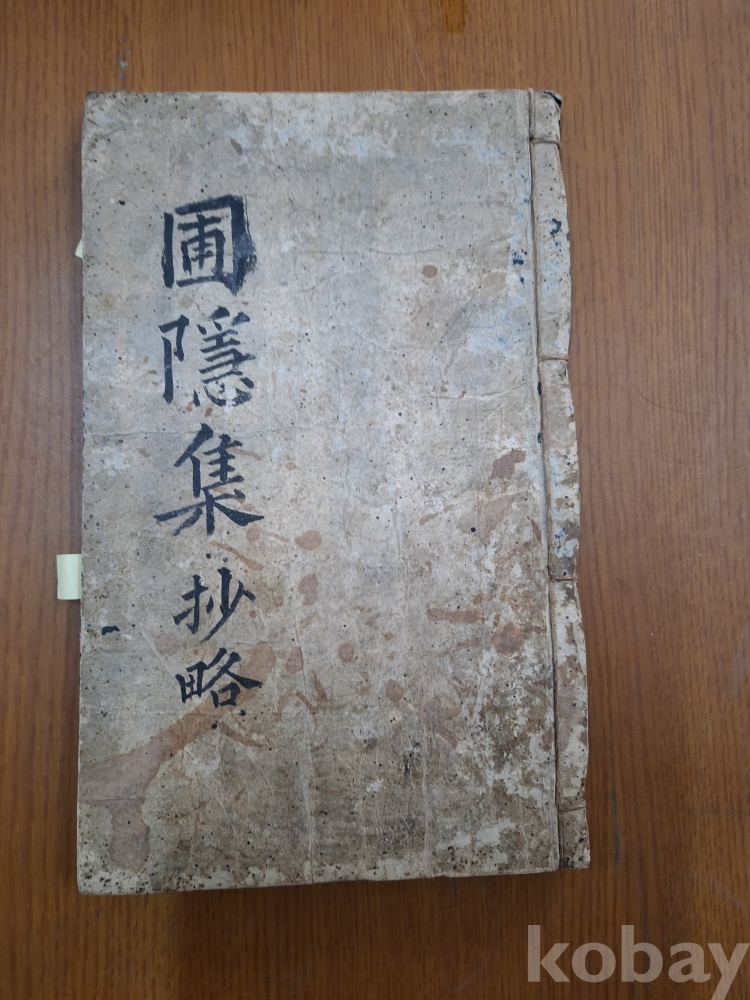 圃隱集抄略
kobay